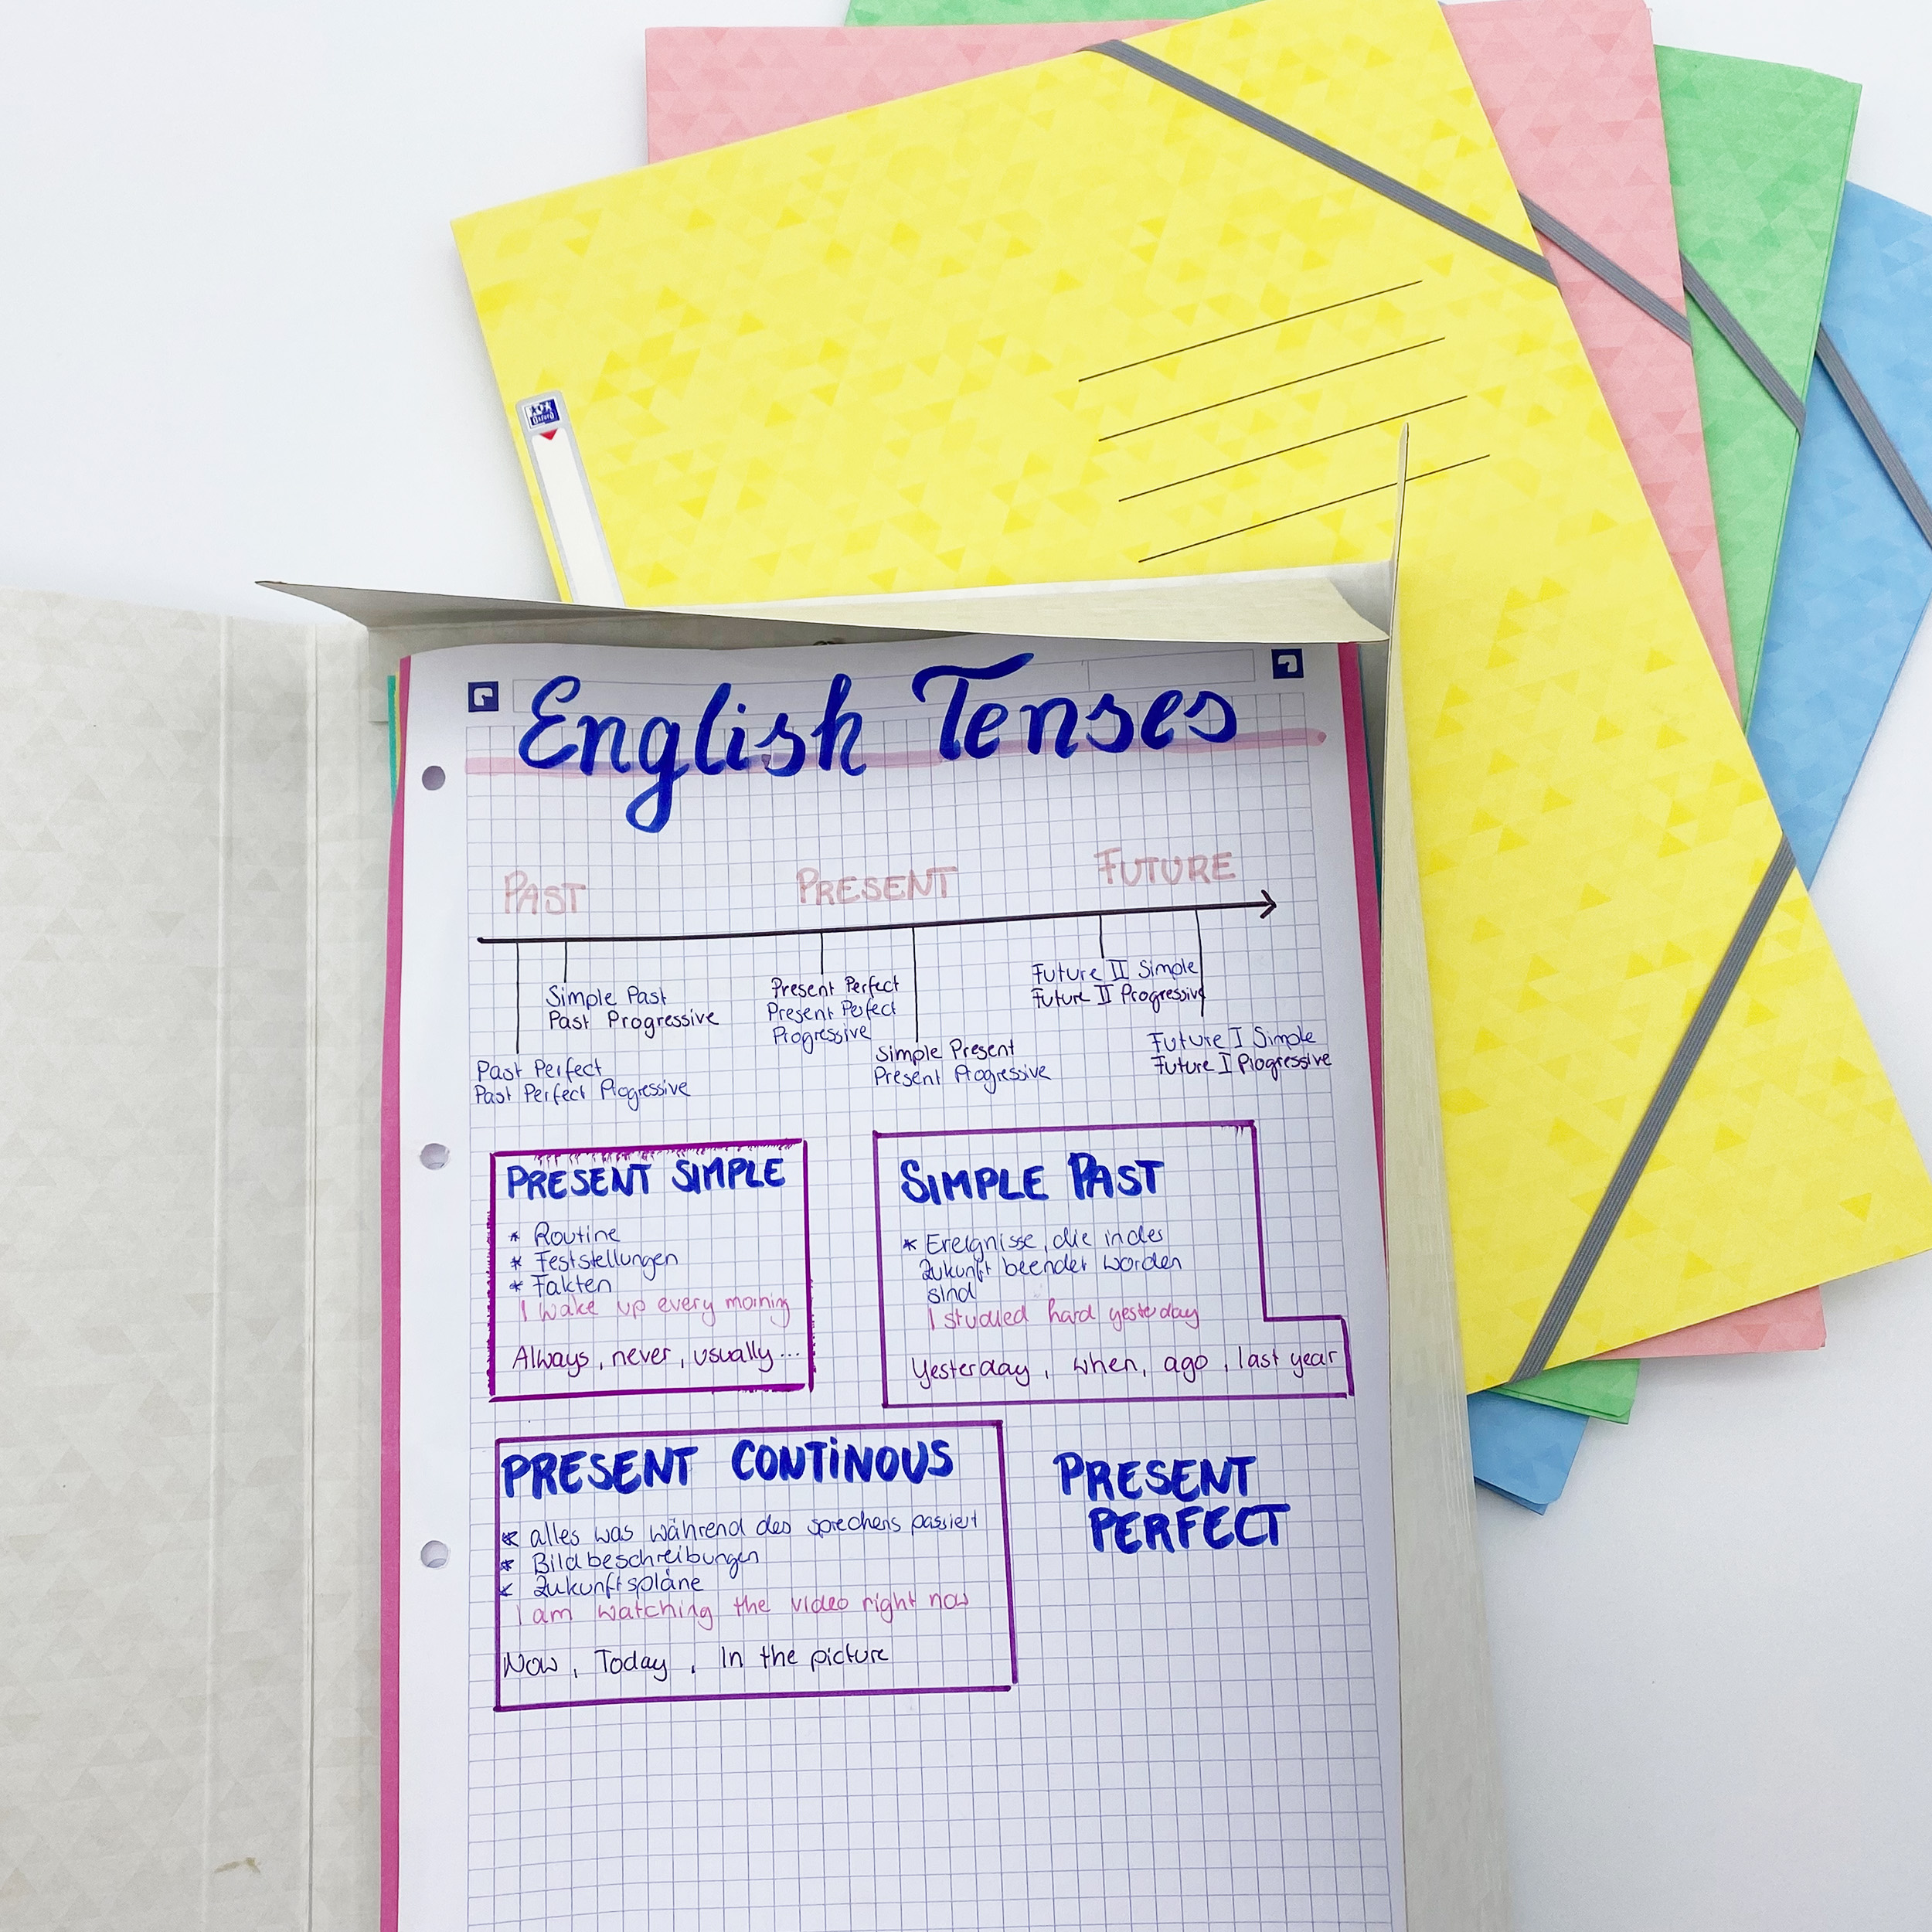 Oxford
English Tenses
PAST PRESENT FUTURE
Simple Past
Past Progressive
Past Perfect
Past Perfect Progressive
Present Perfect
Present Perfect
Progressive
Simple Present
Present Progressive
Future II Simple
Future II Progressive
Future I Simple
Future I Progressive
PRESENT SIMPLE
* Routine
* Feststellungen
* Fakten
I wake up every morning
Always, never, usually...
SIMPLE PAST
* Ereignisse, die in des
Zukunft beendet worden
sind
I studied hard yesterday
Yesterday, when, ago, last year
PRESENT CONTINOUS
* alles was während des sprechens passiert
* Bildbeschreibungen
* Zukunftspläne
I am watching the video right now
Now, Today, In the picture
PRESENT
PERFECT